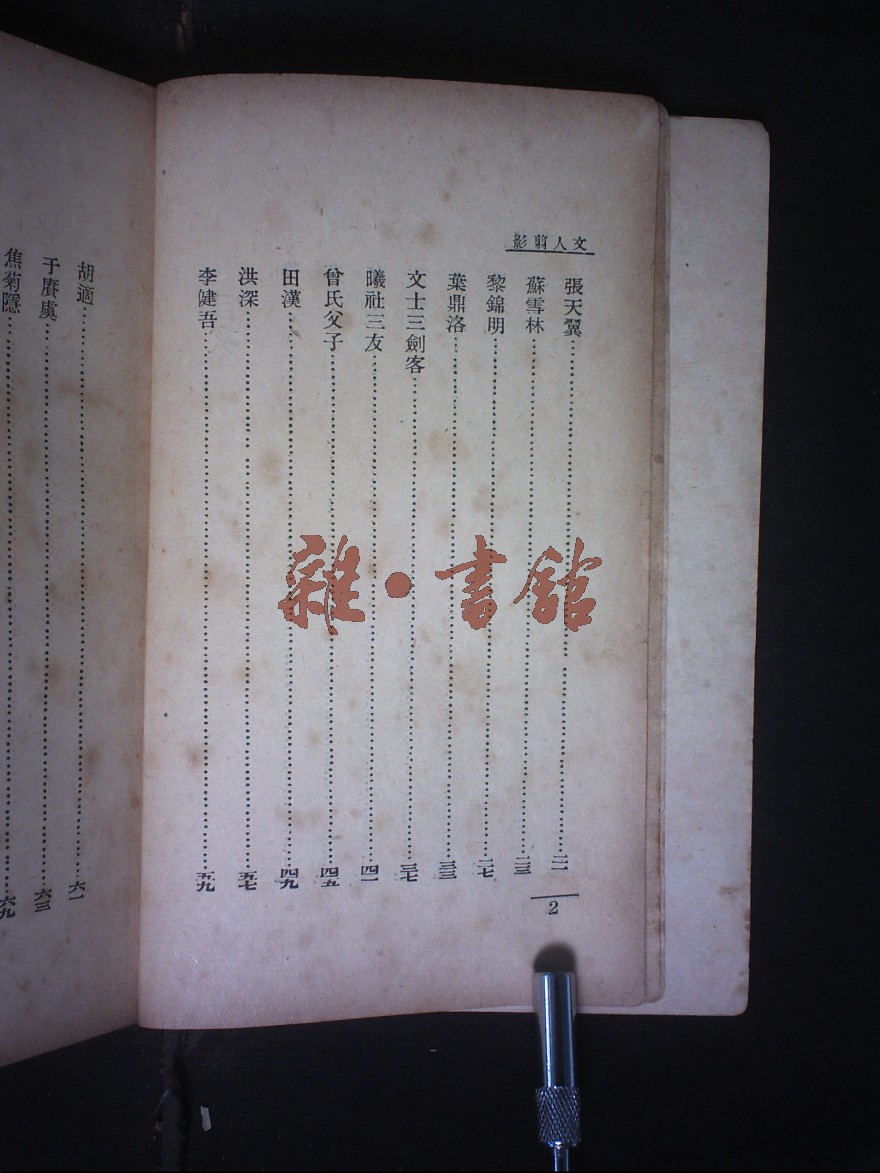 文人剪影
張天翼……二一
蘇雪林……二三
黎錦明……二七
葉鼎洛……三三
文士三劍客……三七
曦社三友……四一
曾氏父子……四五
田漢……四九
洪深……五七
李健吾……五九
2
胡適……六一
于賡虞……六三
焦菊隱……六九
雜·書館